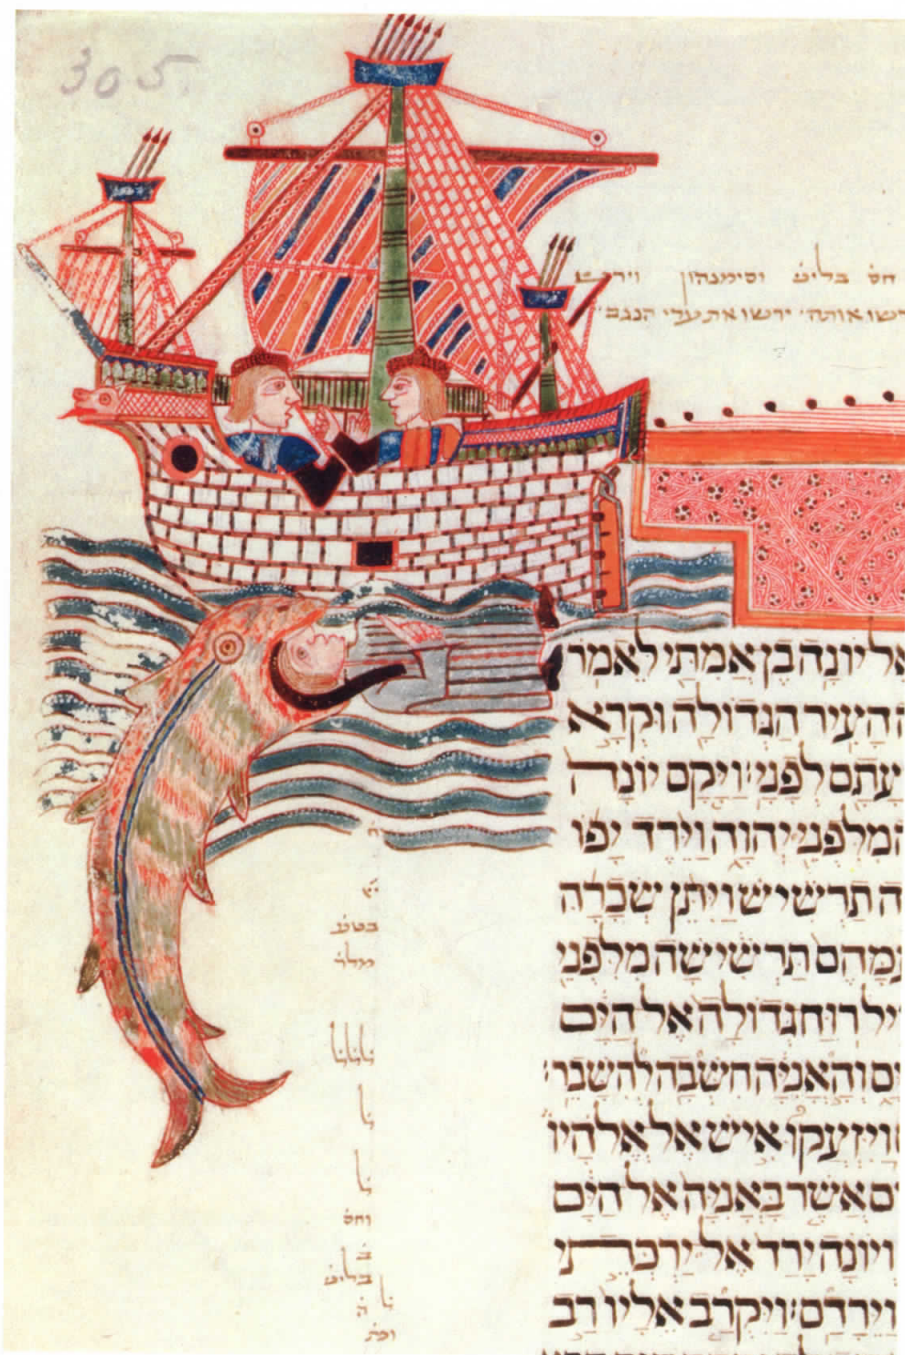 305
חס בליש וסימנהון וירש
רשו אותה ירשו את ערי הנגב
אֶל יוֹנָה בֶן אֲמִתַּי לֵאמֹר
ה הָעִיר הַגְּדוֹלָה וּקְרָא
עָתָם לְפָנָי׃ וַיָּקָם יוֹנָה
ה מִלִּפְנֵי יְהוָה וַיֵּרֶד יָפוֹ
ה תַרְשִׁישׁ וַיִּתֵּן שְׂכָרָהּ
עִמָּהֶם תַּרְשִׁישָׁה מִלִּפְנֵי
יל רוּחַ גְּדוֹלָה אֶל הַיָּם
ים וְהָאֳנִיָּה חִשְּׁבָה לְהִשָּׁבֵר׃
וַיִּזְעֲקוּ אִישׁ אֶל אֱלֹהָיו
ים אֲשֶׁר בָּאֳנִיָּה אֶל הַיָּם
וְיוֹנָה יָרַד אֶל יַרְכְּתֵי
וַיֵּרָדַם׃ וַיִּקְרַב אֵלָיו רַב
בטע
מלר
ל ל ל
ל
ל
וחס
ב
בליש
ל
ה
וכת